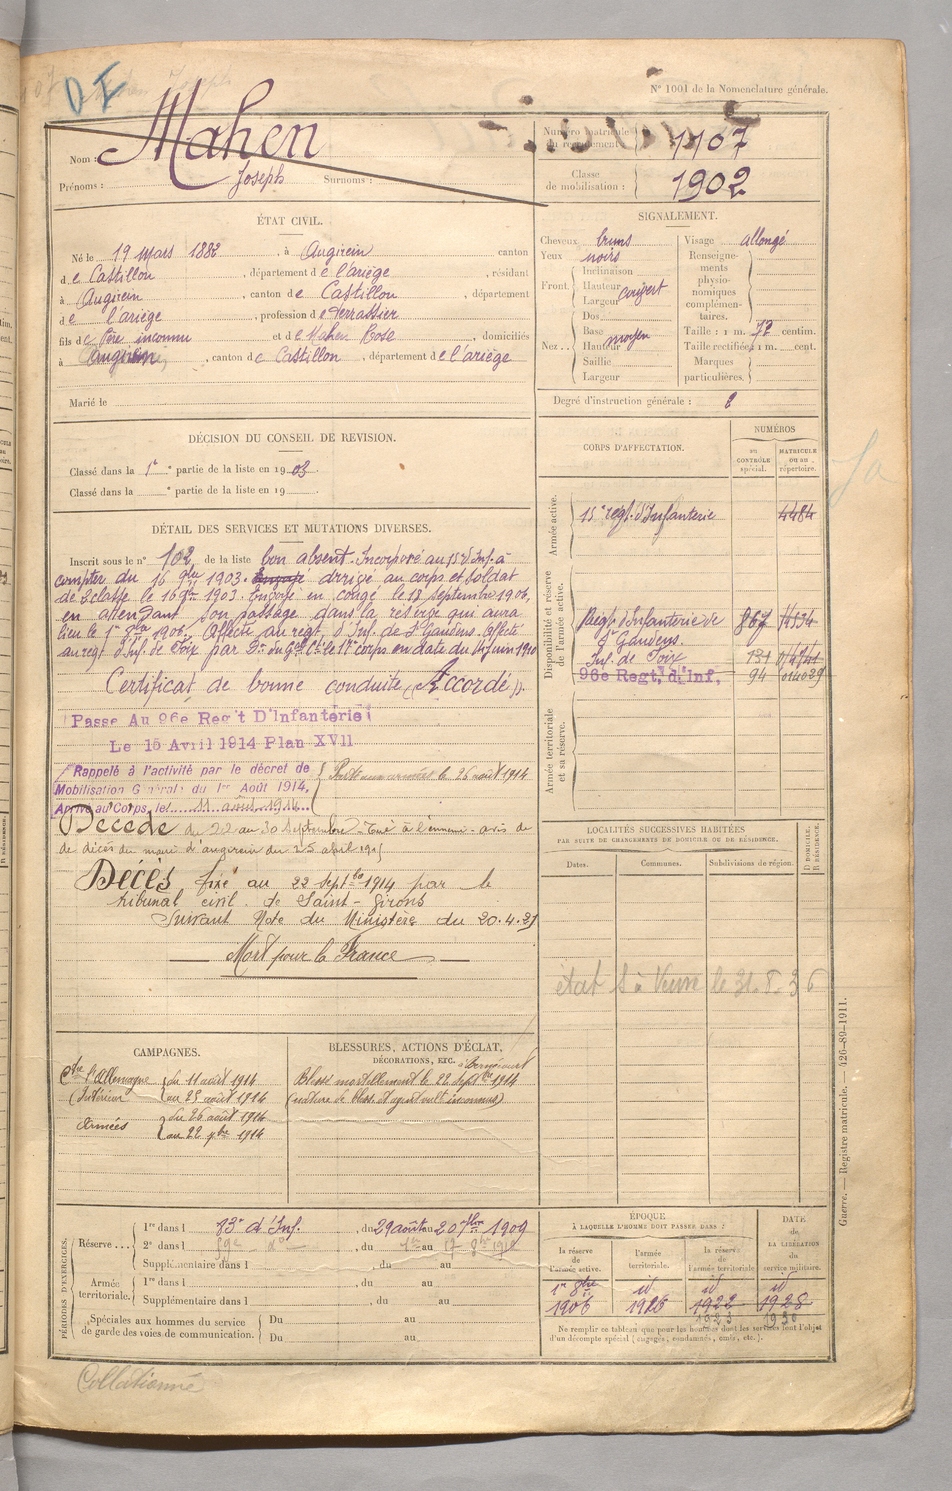 N° 1001 de la Nomenclature générale.
DÉ
Nom : Mahen
Prénoms : Joseph Surnoms :
Numéro matricule du recrutement : 1107
Classe de mobilisation : 1902
ÉTAT CIVIL.
Né le 19 Mars 1882, à Augirein canton
de Castillon, département de l'ariège, résidant
à Augirein, canton de Castillon, département
de l'ariège, profession de terrassier
fils de Père inconnu et de Mahen Rose, domiciliés
à Augirein, canton de Castillon, département de l'ariège
Marié le
SIGNALEMENT.
Cheveux bruns
Yeux noirs
Front. Inclinaison
Hauteur
Largeur
Nez. Dos
Base
Hauteur moyen
Saillie
Largeur
Visage allongé
Renseignements physionomiques complémentaires.
Taille : 1 m. 72 centim.
Taille rectifiée : 1 m. cent.
Marques particulières.
Degré d'instruction générale : 2
DÉCISION DU CONSEIL DE REVISION.
Classé dans la 1re partie de la liste en 1903.
Classé dans la e partie de la liste en 19 .
DÉTAIL DES SERVICES ET MUTATIONS DIVERSES.
Inscrit sous le n° 102 de la liste bon absent. Incorporé au 15e d'Inf. à
compter du 16 9bre 1903. dirigé au corps et soldat
de 2e classe le 16 9bre 1903. Envoyé en congé le 18 septembre 1906,
en attendant son passage dans la réserve qui aura
lieu le 1er 1906. Affecté au regt. d'Inf. de St Gaudens. Affecté
au regt d'Inf. de Foix par Don du Gal Ct le 17e corps en date du 14 juin 1910
Certificat de bonne conduite "Accordé".
Passe Au 96e Reg't D'Infanterie
Le 15 Avril 1914 Plan XVII
Rappelé à l'activité par le décret de
Mobilisation Générale du 1er Août 1914,
Arrivé au Corps, le 11 août 1914
Parti aux armées le 26 août 1914
Décédé du 22 au 30 Septembre - Tué à l'ennemi - avis de
de décès du maire d'augirein du 25 abril 1915
Décès fixé au 22 septbre 1914 par le
tribunal civil de Saint-Girons
Suivant Note du Ministère du 20.4.21
Mort pour la France
CORPS D'AFFECTATION.
NUMÉROS
au CONTRÔLE spécial.
MATRICULE ou au répertoire.
Armée active.
15e regt. d'Infanterie 4484
Disponibilité et réserve de l'armée active.
Regt d'Infanterie de St Gaudens. 867
Inf. de Foix 131
96e Regt, d'Inf, 94 014029
Armée territoriale et sa réserve.
LOCALITÉS SUCCESSIVES HABITÉES
PAR SUITE DE CHANGEMENTS DE DOMICILE OU DE RÉSIDENCE.
Dates. Communes. Subdivisions de région. D DOMICILE. R RÉSIDENCE.
état S à Veuve le 31.8.36
CAMPAGNES.
Ctre l'Allemagne
Intérieur du 11 août 1914 au 25 août 1914
Armées du 26 août 1914 au 22 7bre 1914
BLESSURES, ACTIONS D'ÉCLAT,
DÉCORATIONS, ETC.
à Bernécourt
Blessé mortellement le 22 septbre 1914
(nature de bless. et agent vuln. inconnus)
PÉRIODES D'EXERCICES.
Réserve... 1re dans l 83e d'Inf., du 29 août au 20 7bre 1909
2e dans l 59e do, du au 17 1912
Supplémentaire dans l , du au
Armée territoriale. 1re dans l , du au
Supplémentaire dans l , du au
Spéciales aux hommes du service de garde des voies de communication. Du au
Du au
ÉPOQUE
À LAQUELLE L'HOMME DOIT PASSER DANS :
la réserve de l'armée active. l'armée territoriale. la réserve de l'armée territoriale
DATE DE LA LIBÉRATION du service militaire.
1er 8bre 1906 id 1916 id 1922 id 1928
1923 1930
Ne remplir ce tableau que pour les hommes dont les services font l'objet d'un décompte spécial (engagés, condamnés, omis, etc.).
Guerre. — Registre matricule. — 426-89-1911.
Collationné